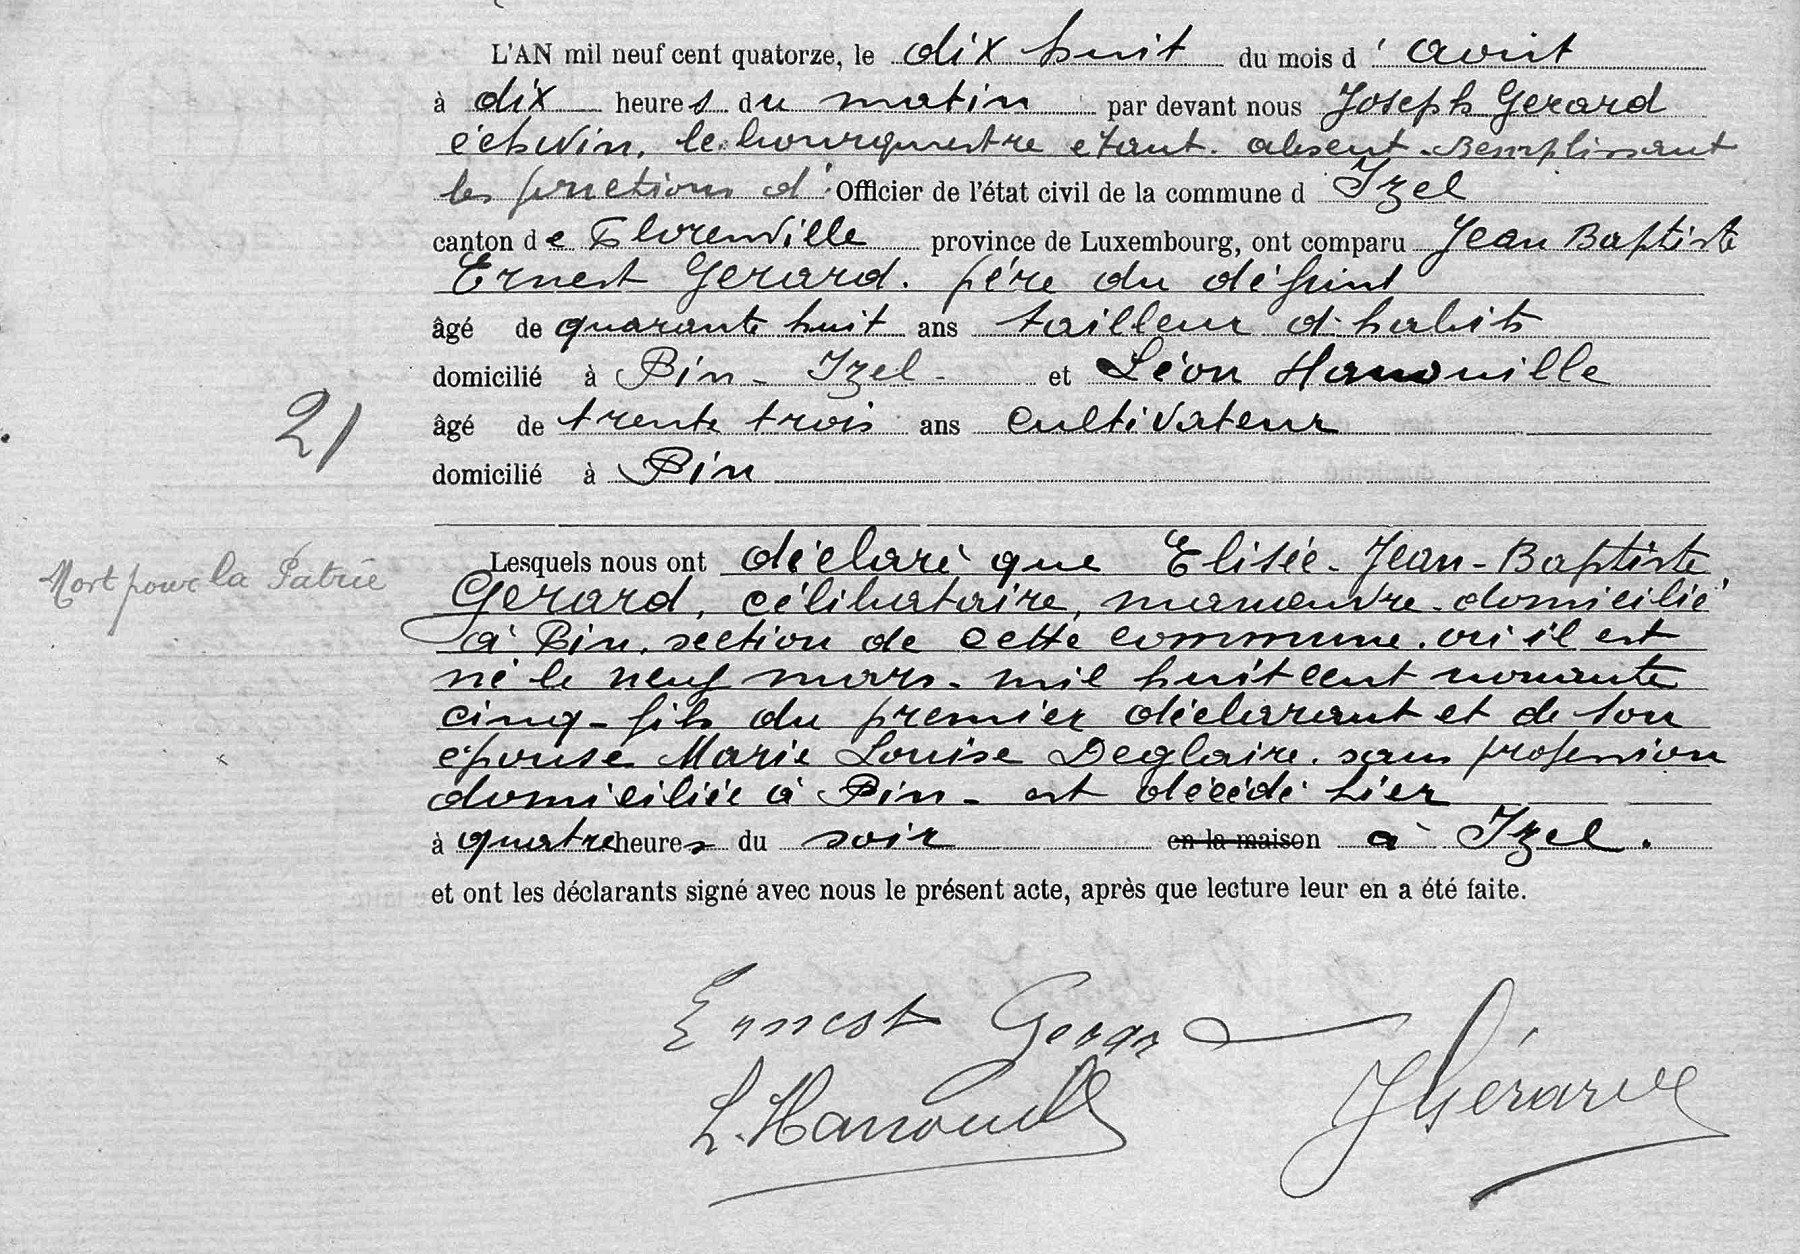 L'AN mil neuf cent quatorze, le dix huit du mois d' aout
à dix heures du matin par devant nous Joseph Gerard
échevin, le bourgmestre etant absent remplissant
les fonctions d' Officier de l'état civil de la commune d Izel
canton de Florenville province de Luxembourg, ont comparu Jean Baptiste
Ernest Gerard. père du défunt
âgé de quarante huit ans tailleur d'habits
domicilié à Pin - Izel - et Léon Hanouille
âgé de trente trois ans cultivateur
domicilié à Pin
21
Mort pour la Patrie
Lesquels nous ont déclaré que Elisée - Jean - Baptiste
Gerard, célibataire, manoeuvre domicilié
à Pin, section de cette commune. où il est
né le neuf mars - mil huit cent nonante
cinq - fils du premier déclarant et de son
épouse Marie Louise Deglaire. sans profession
domiciliée à Pin - est décédé hier
à quatre heures du soir en la maison à Izel.
et ont les déclarants signé avec nous le présent acte, après que lecture leur en a été faite.
Ernest Gerard
JGérard
L. Hanouille